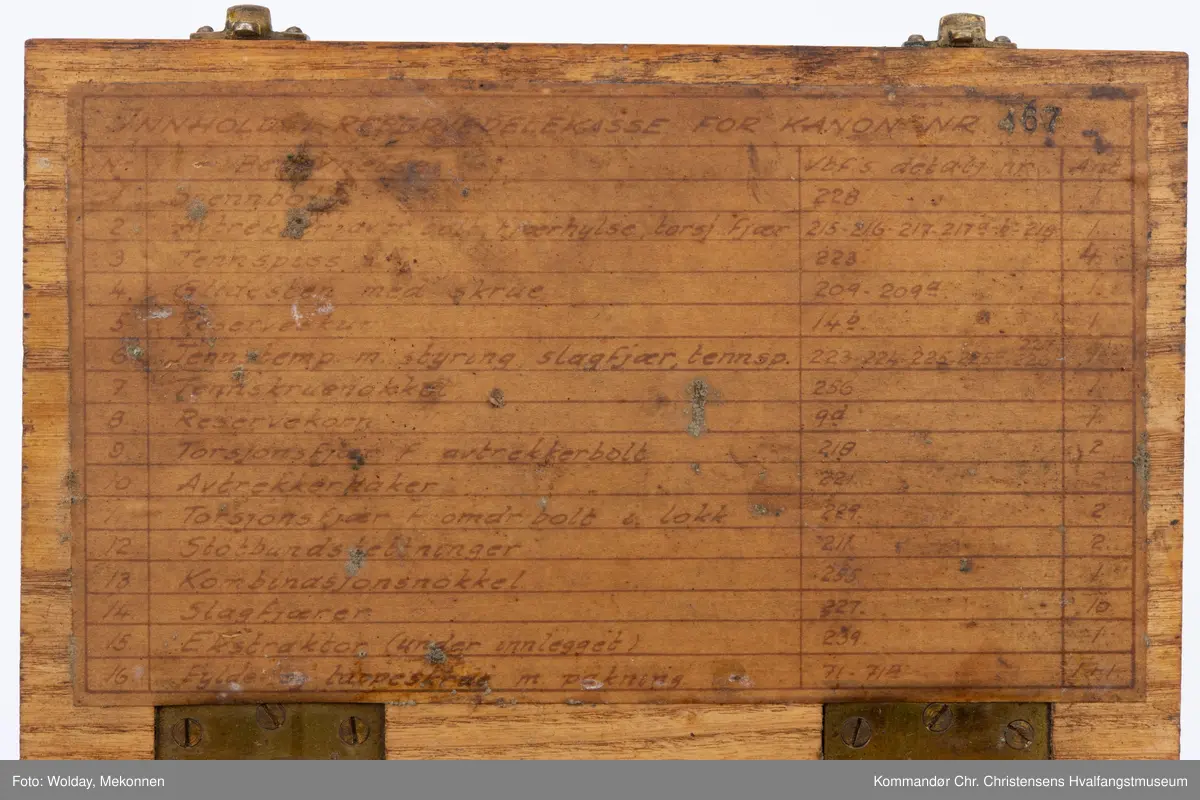 INNHOLD I RESERVEDELEKASSE FOR KANON NR 467
Nr. Vbf's detalj nr. Ant.
1 Spennbolt 228 1.
2 Avtrekker, avtr. bolt, fjærhylse, torsj. fjær 215-216-217-217ª-b-218 1.
3 Tennspiss 223. 4.
4. med skrue 209-209ª. 1.
5 Reserveskrue 14b. 1
6. Tennstemp. m. styring slagfjær, tennsp. 223-224-225-
7 Tennskruenøkkel 256 1.
8. Reservekorn 9d 1.
9. Torsjonsfjær f avtrekkerbolt 218. 2
10 Avtrekkerhaker 221. 2
11. Torsjonsfjær f. omdr bolt i lokk 229. 2
12. Støtbundstettninger 211. 2.
13 Kombinasjonsnøkkel 255 1.
14 Slagfjærer 227. 10.
15 Ekstraktor (under innlegget) 239. 1.
16. Fylde og tappeskrue m pakning 71-71A
Foto: Wolday, Mekonnen
Kommandør Chr. Christensens Hvalfangstmuseum